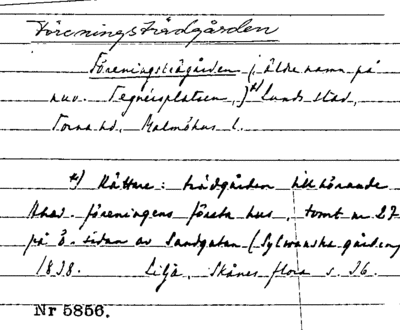 Föreningsträdgården
Föreningsträdgården (äldre namn på
nuv. Tegnérsplatsen,) *) Lunds stad,
Torna hd, Malmöhus l.
*) Rättare: trädgården tillhörande
Akad. föreningens första hus, tomt nr 27
på Ö. sidan av Sandgatan (Sylwanska gården)
1838. Lilja, Skånes flora s. 36.
Nr 5856.